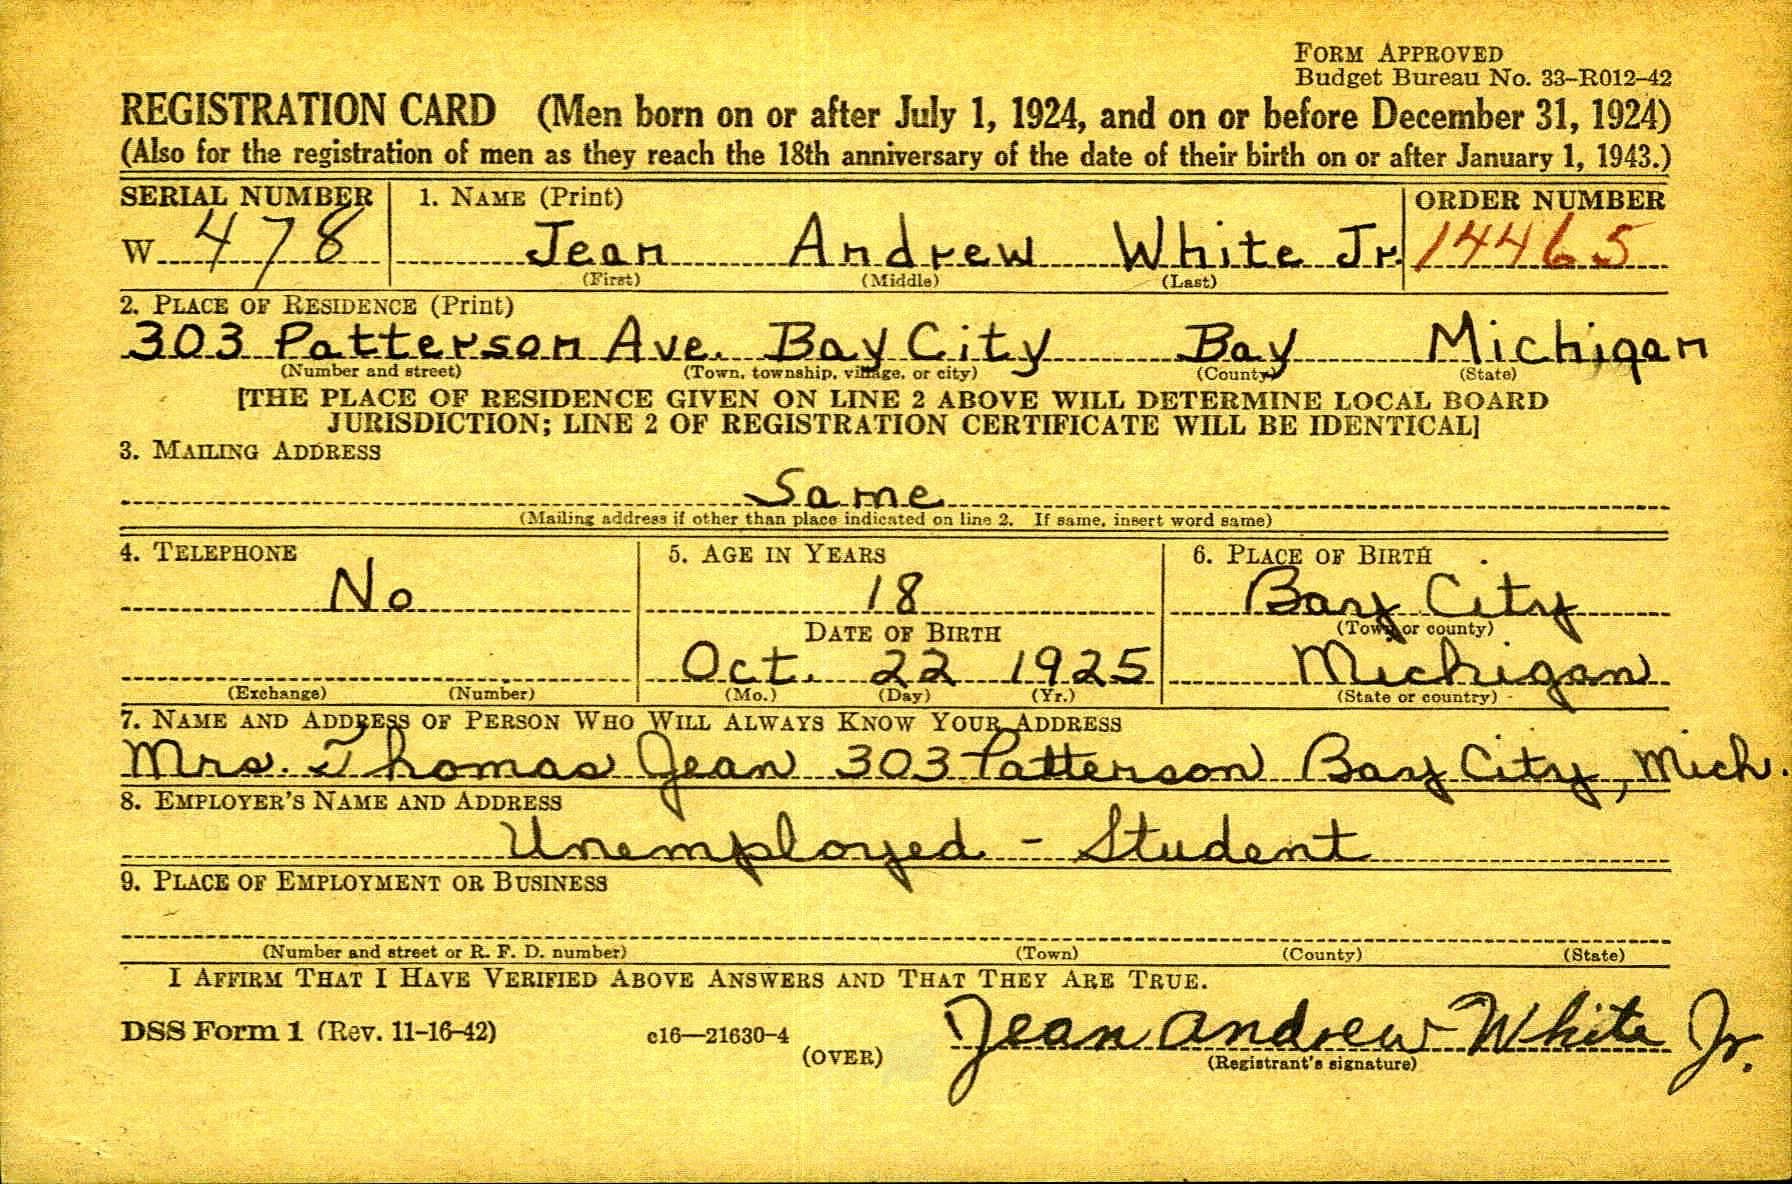 FORM APPROVED
Budget Bureau No. 33–R012–42
REGISTRATION CARD (Men born on or after July 1, 1924, and on or before December 31, 1924)
(Also for the registration of men as they reach the 18th anniversary of the date of their birth on or after January 1, 1943.)
SERIAL NUMBER 1. NAME (Print) ORDER NUMBER
W 478 Jean Andrew White Jr. 14465
(First) (Middle) (Last)
2. PLACE OF RESIDENCE (Print)
303 Patterson Ave. Bay City Bay Michigan
(Number and street) (Town, township, village, or city) (County) (State)
[THE PLACE OF RESIDENCE GIVEN ON LINE 2 ABOVE WILL DETERMINE LOCAL BOARD
JURISDICTION; LINE 2 OF REGISTRATION CERTIFICATE WILL BE IDENTICAL]
3. MAILING ADDRESS
Same
(Mailing address if other than place indicated on line 2. If same, insert word same)
4. TELEPHONE 5. AGE IN YEARS 6. PLACE OF BIRTH
No 18 Bay City
DATE OF BIRTH (Town or county)
Oct. 22 1925 Michigan
(Exchange) (Number) (Mo.) (Day) (Yr.) (State or country)
7. NAME AND ADDRESS OF PERSON WHO WILL ALWAYS KNOW YOUR ADDRESS
Mrs. Thomas Jean 303 Patterson Bay City, Mich.
8. EMPLOYER'S NAME AND ADDRESS
Unemployed - Student
9. PLACE OF EMPLOYMENT OR BUSINESS
(Number and street or R. F. D. number) (Town) (County) (State)
I AFFIRM THAT I HAVE VERIFIED ABOVE ANSWERS AND THAT THEY ARE TRUE.
DSS Form 1 (Rev. 11-16-42) c16—21630-4 Jean Andrew White Jr.
(OVER) (Registrant's signature)